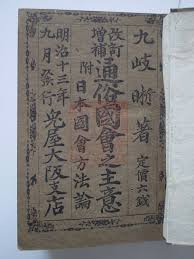 九岐晰著
定價六錢
改訂
增補
通俗國會之主意
附日本國會方法論
明治十三年
九月發行
兎屋大阪支店